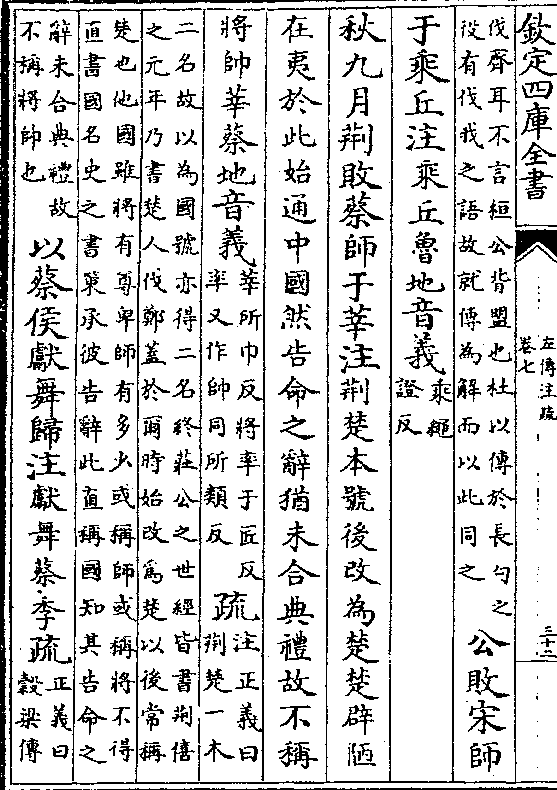 欽定四庫全書
左傳注疏
卷七
三十二
伐齊耳不言桓公背盟也杜以傳於長勺之
役有伐我之語故就傳為解而以此同之
公敗宋師
于乘丘注乘丘魯地音義
乘繩
證反
秋九月荆敗蔡師于莘注荆楚本號後改為楚楚辟陋
在夷於此始通中國然告命之辭猶未合典禮故不稱
將帥莘蔡地音義
莘所巾反將率于匠反
率又作帥同所類反
疏
注正義曰
荆楚一木
二名故以為國號亦得二名終莊公之世經皆書荆僖
之元年乃書楚人伐鄭蓋於爾時始改為楚以後常稱
楚也他國雖將有尊卑師有多少或稱師或稱將不得
直書國名史之書策承彼告辭此直稱國知其告命之
辭未合典禮故
不稱將帥也
以蔡侯獻舞歸注獻舞蔡季疏
正義曰
穀梁傳